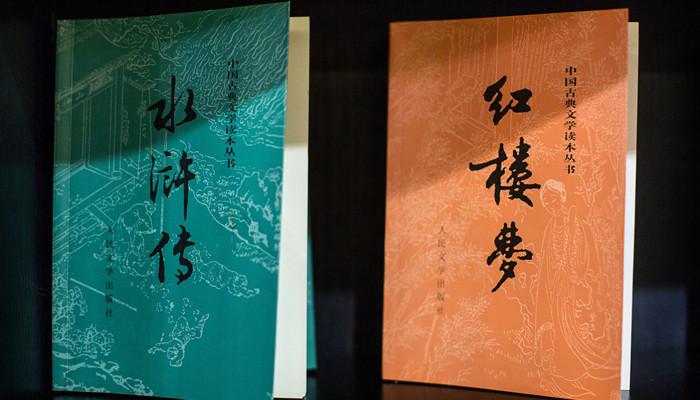 中国古典文学读本丛书
水浒传
人民文学出版社
中国古典文学读本丛书
红楼梦
人民文学出版社